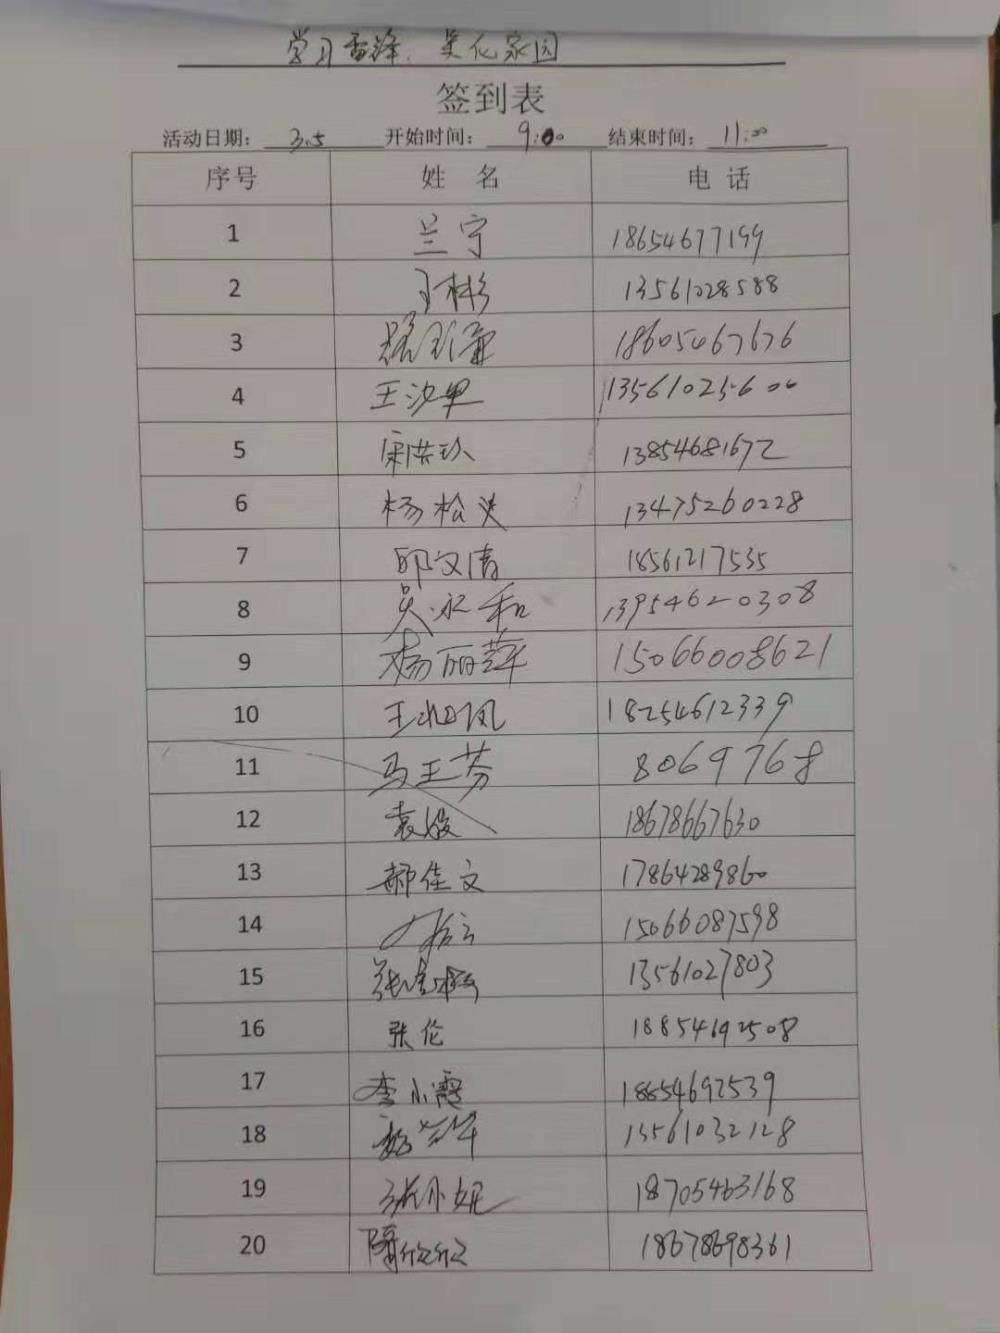 学习雷锋. 美化家园
签到表
活动日期: 3.5 开始时间: 9:00 结束时间: 11:00
序号 姓 名 电 话
1 兰宁 18654677199
2 王彬 13561028588
3 18605467676
4 王沙里 13561025600
5 宋洪玖 13854681672
6 杨松 13475260228
7 邱文清 18561217535
8 吴永和 13954620308
9 杨丽萍 15066008621
10 王 凤 18254612339
11 马玉芬 8069768
12 袁媛 18678667630
13 郝佳文 17864289860
14 15066087598
15 张 13561027803
16 张伦 18854192508
17 李小霞 18654692539
18 13561032128
19 张小妮 18705463168
20 隋欣欣 18678698361